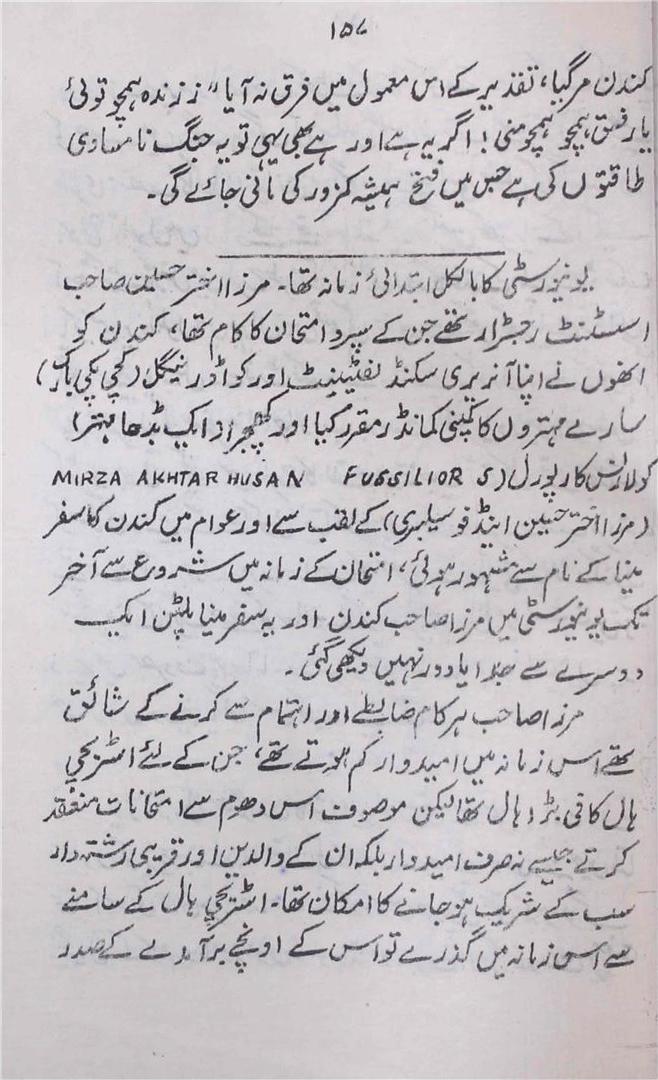 ۱۵۷
کندن مرگیا، تقدیر کے اس معمول میں فرق نہ آیا “ززندہ ہمچو توئی
یا رفیق ہمچو ہمچومنی! اگر یہ ہے اور ہے بھی یہی تو یہ جنگ نامساوی
طاقتوں کی ہے جس میں فتح ہمیشہ کمزور کی مانی جائے گی۔
یونیورسٹی کا بالکل ابتدائی زمانہ تھا۔ مرزا اختر حسین صاحب
اسسٹنٹ رجسٹرار تھے جن کے سپرد امتحان کا کام تھا، کندن کو
انھوں نے اپنا آنریری سکنڈ لفٹیننٹ اور کواڈورنیگل (کچی پکی بارک)
سارے مہتروں کا کمپنی کمانڈر مقرر کیا اور کھچیرا (ایک بڈھا مہتر)
کو لانس کارپورل (MIRZA AKHTAR HUSAN FUSSILIOR S
(مرزا اختر حسین اینڈ فوسیلیری) کے لقب سے اور عوام میں کندن کا سفر
مینا کے نام سے مشہور ہوئی، امتحان کے زمانہ میں شروع سے آخر
تک یونیورسٹی میں مرزا صاحب کندن اور یہ سفر مینا پلٹن ایک
دوسرے سے جدا یا دور نہیں دیکھی گئی۔
مرزا صاحب ہر کام ضابطے اور اہتمام سے کرنے کے شائق
تھے اس زمانہ میں امیدوار کم ہوتے تھے، جن کے لئے اسٹریچی
ہال کافی بڑا ہال تھا لیکن موصوف اس دھوم سے امتحانات منعقد
کرتے جیسے نہ صرف امیدوار بلکہ ان کے والدین اور قریبی رشتہ دار
سب کے شریک ہو جانے کا امکان تھا۔ اسٹریچی ہال کے سامنے
سے اس زمانہ میں گذرے تو اس کے اونچے برآمدے کے صدر